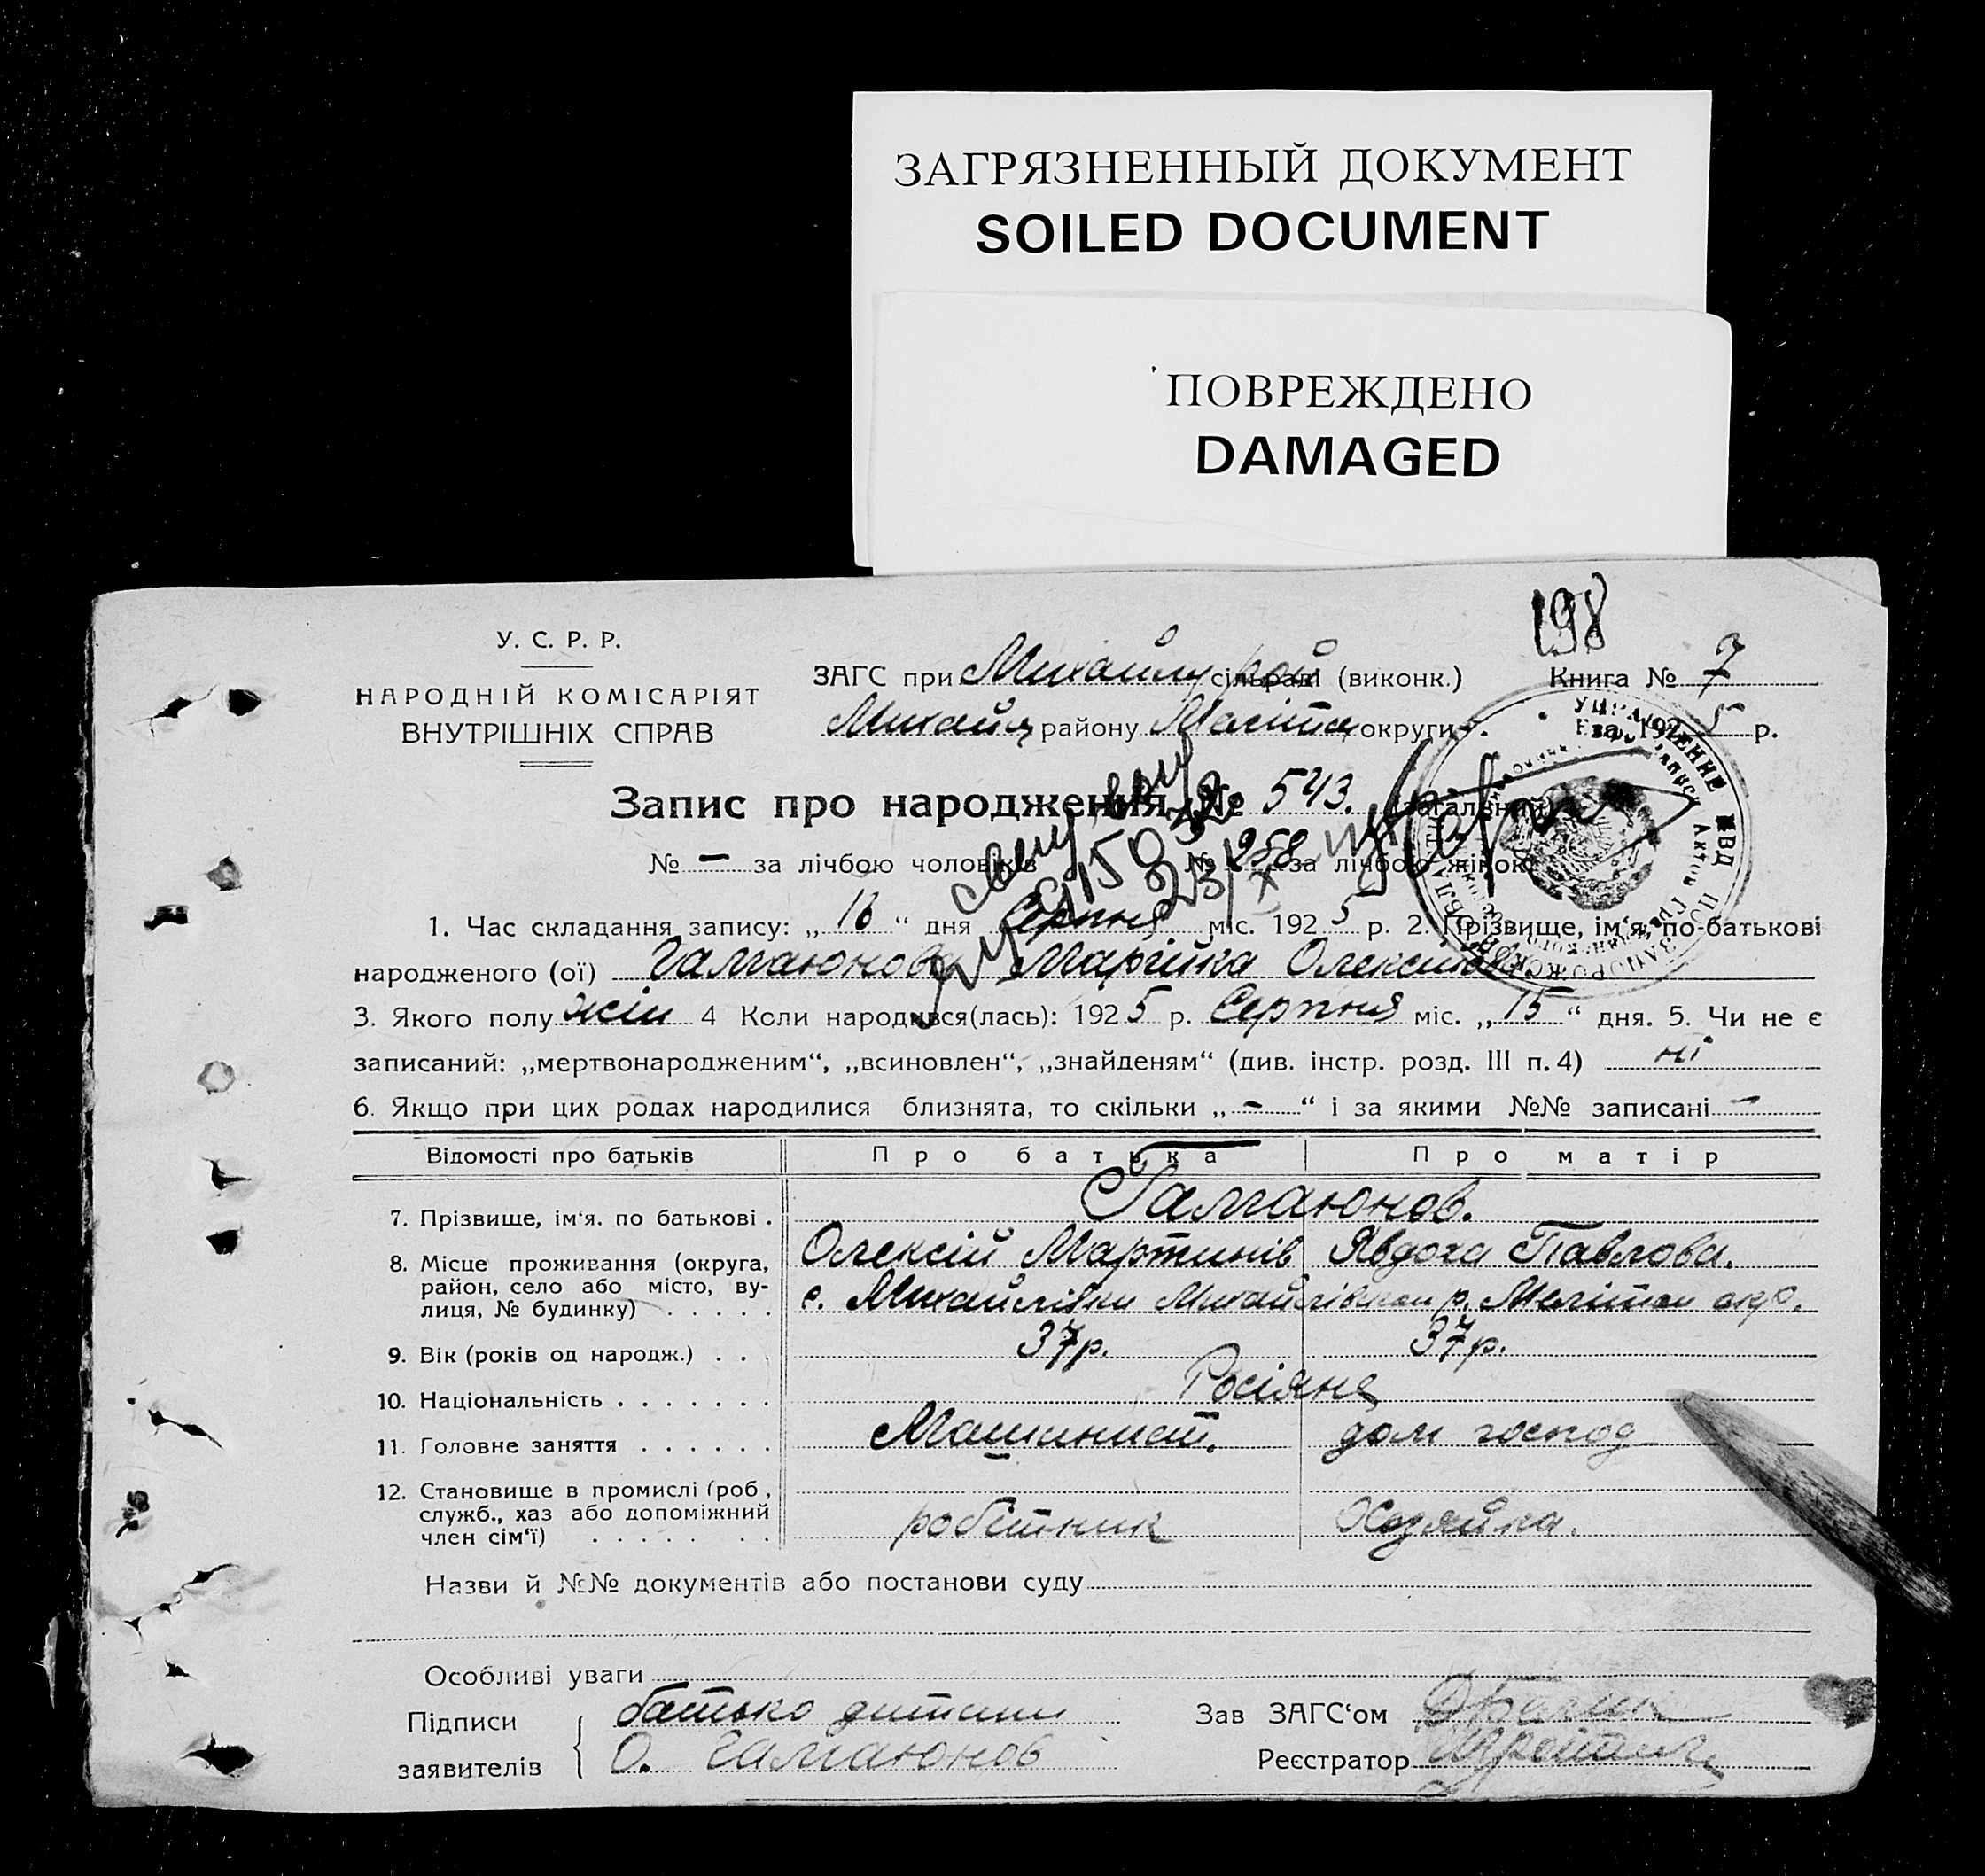 ЗАГРЯЗНЕННЫЙ ДОКУМЕНТ
SOILED DOCUMENT
ПОВРЕЖДЕНО
DAMAGED
198
У. С. Р. Р.
НАРОДНІЙ КОМІСАРІЯТ
ВНУТРІШНІХ СПРАВ
ЗАГС при сільраді (виконк.) Книга № 7
району округи За 1925 р.
Запис про народження № 543. (загальний)
№ – за лічбою чоловіків № 258 за лічбою жінок
1. Час складання запису: „16“ дня Серпня міс. 1925 р. 2. Прізвище, ім‘я, по-батькові
народженого (ої) Гамаюнова Марійка
3. Якого полу жін 4 Коли народився(лась): 1925 р. Серпня міс. „15“ дня. 5. Чи не є
записаний: „мертвонародженим“, „всиновлен“, „знайденям“ (див. інстр. розд. III п. 4) ні
6. Якщо при цих родах народилися близнята, то скільки „–“ і за якими №№ записані –
Відомості про батьків Про батька Про матір
7. Прізвище, ім‘я. по батькові . Гамаюнов.
Олексій Мартинів Явдоха Павлова.
8. Місце проживання (округа, район, село або місто, ву-
лиця, № будинку) . . . . . с. Михайлівки р. окр.
9. Вік (років од народж.) . . . 37 р. 37 р.
10. Національність . . . . . . . Росіяне
11. Головне заняття . . . . . . Машинист. дом господ
12. Становище в промислі (роб.,
служб., хаз або допоміжний
член сім‘ї) . . . . . . . робітник Хозяйка.
Назви й №№ документів або постанови суду
Особливі уваги
Підписи батько дитини Зав ЗАГС‘ом
заявителів О. Гамаюнов Реєстратор